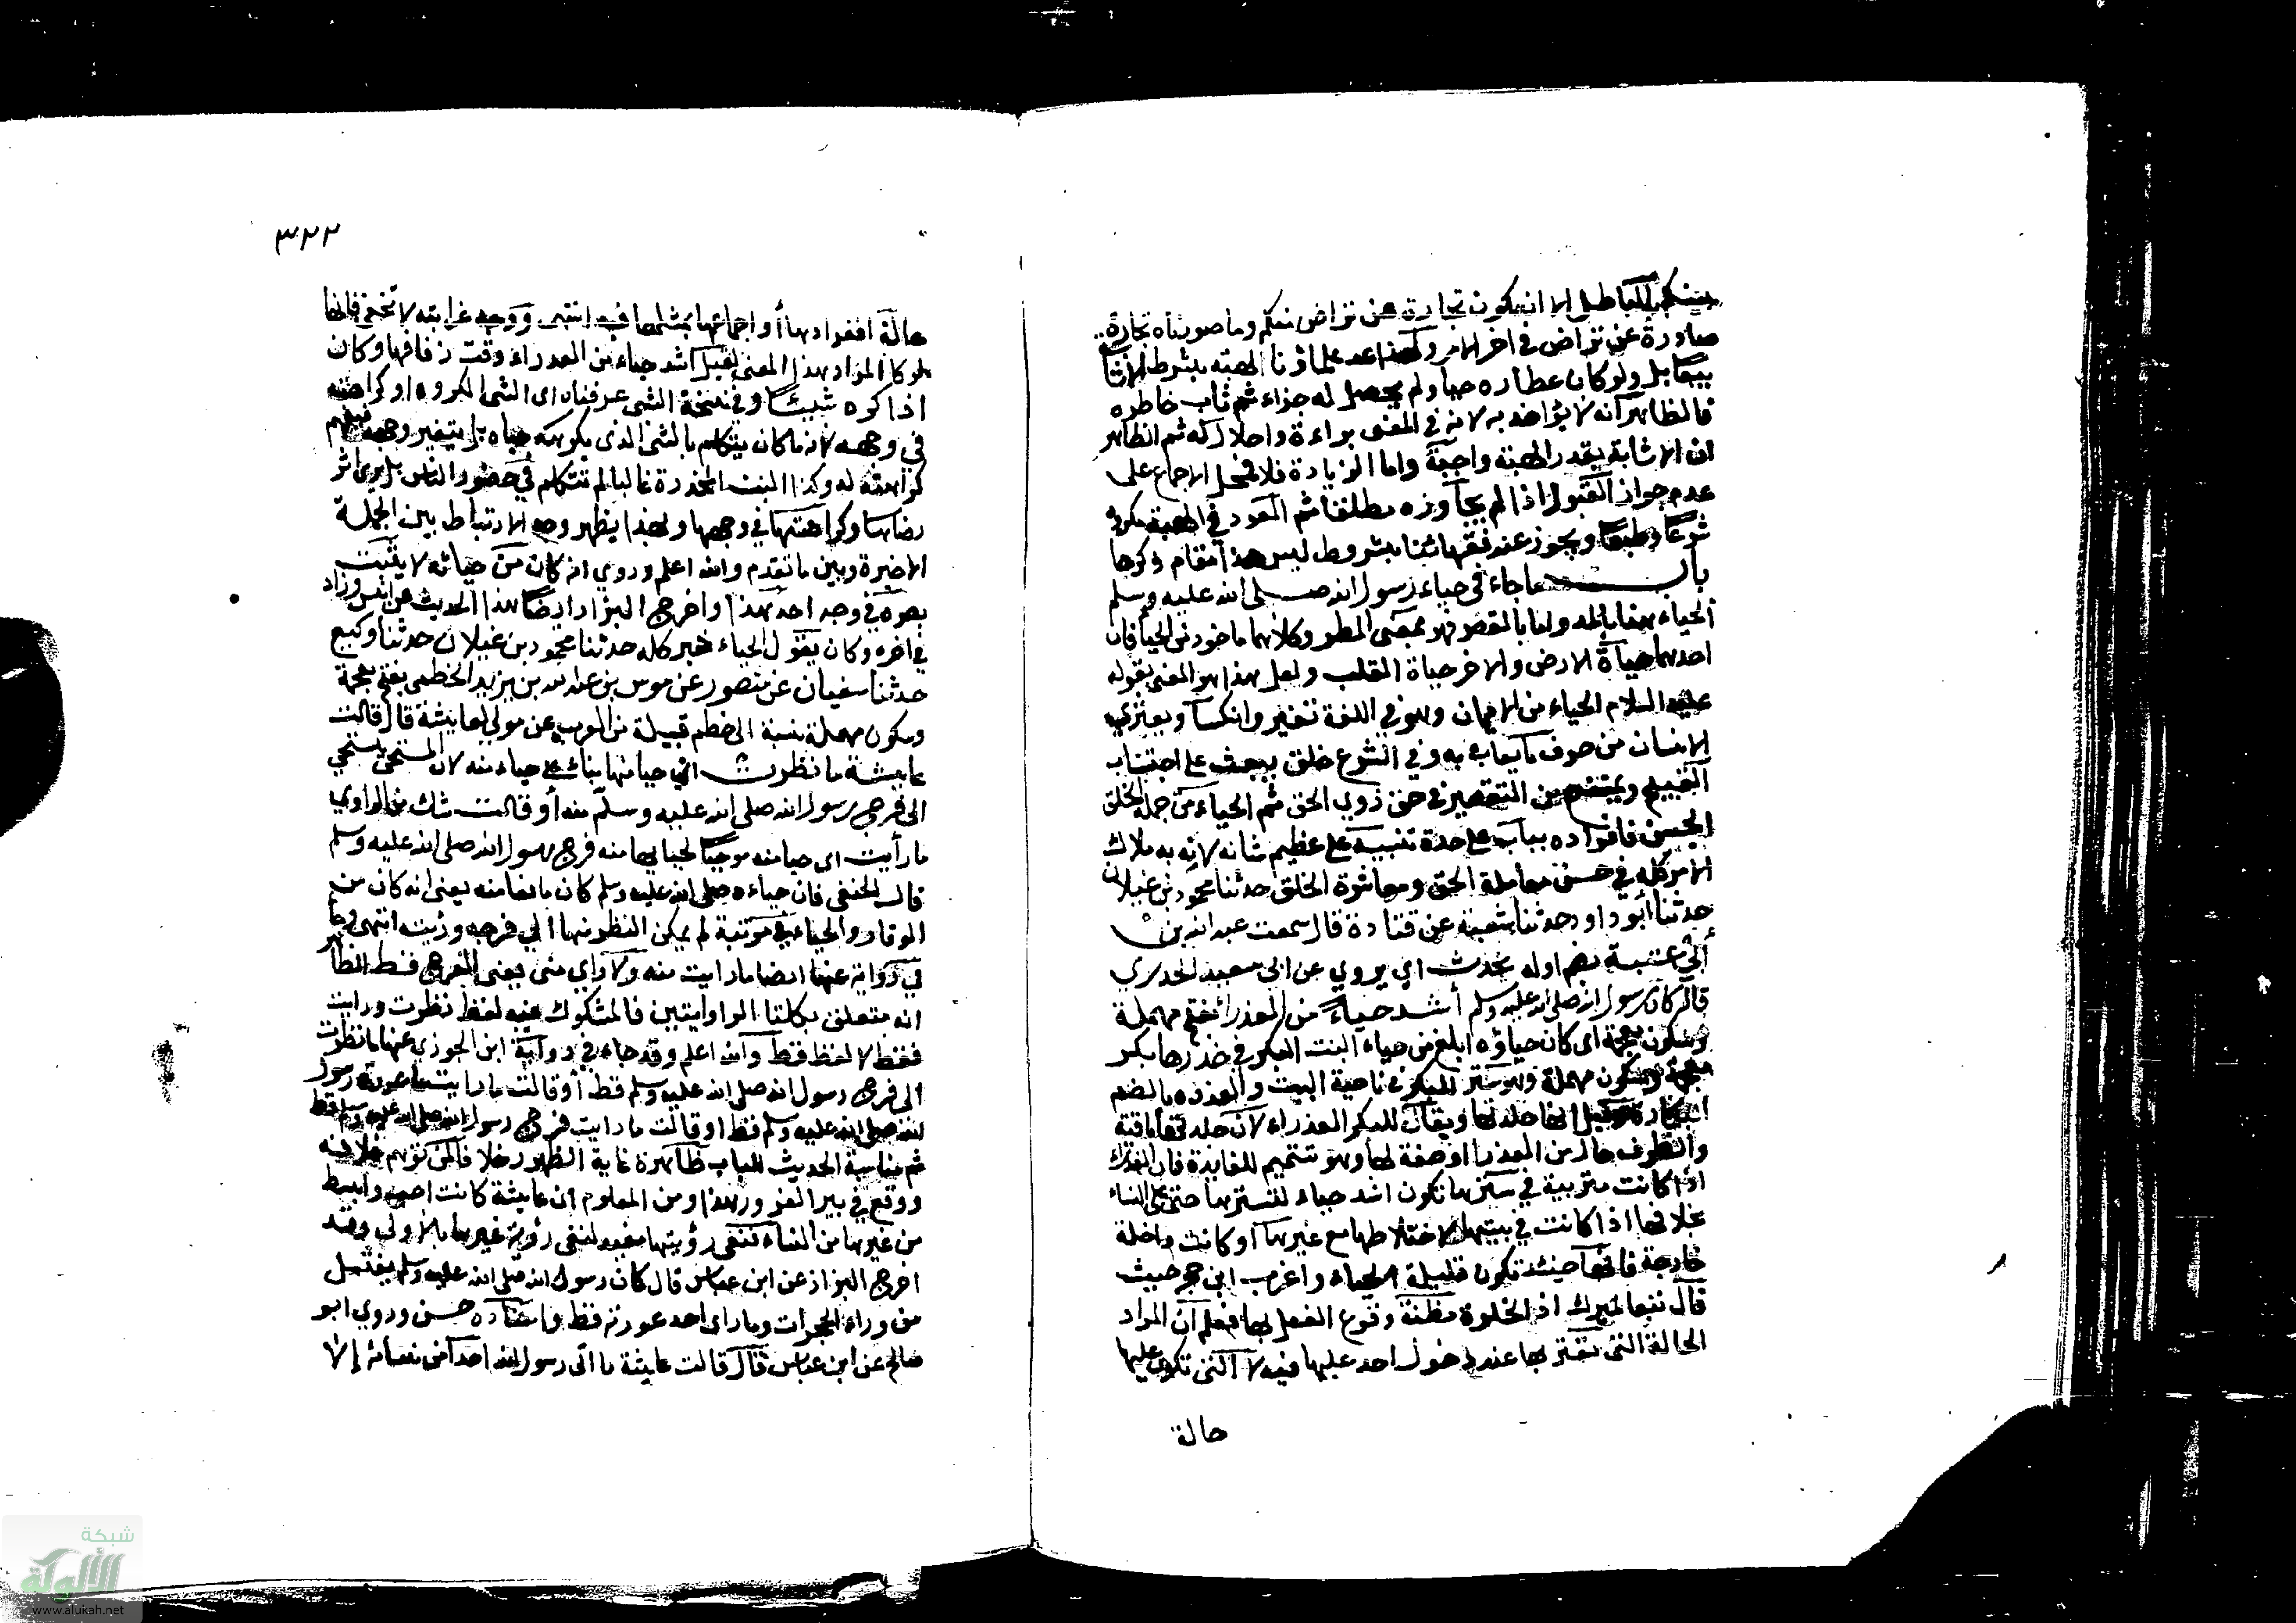 بينكم بالباطل الا ان يكون تجارة عن تراض منكم وما صورناه تجارة
صادرة عن تراض في اخر الامر ولهذا عد علماؤنا الهبة بشرط الاثابة
بيعا بل ولو كان عطاؤه حياء ولم يحصل له جزاء ثم ثاب خاطره
فالظاهر انه لا يؤاخذ به لانه في المعنى براءة واحلال له ثم الظاهر
ان الاثابة بقدر الهبة واجبة واما الزيادة فلا فمحل الاجماع على
عدم جواز القبول اذا لم يجاوزه مطلقا ثم العود في الهبة مكروه
شرعا وطبعا ويجوز عند فقهائنا بشروط ليس هذا مقام ذكرها
باب ما جاء في حياء رسول الله صلى الله عليه وسلم
الحياء هنا بالمد واما بالقصر فهو بمعنى المطر وكلاهما ماخوذ من الحياة فان
احدهما حياة الارض والاخر حياة القلب ولعل هذا هو المعنى بقوله
عليه السلام الحياء من الايمان وهو في اللغة تغير وانكسار يعتري
الانسان من خوف ما يعاب به وفي الشرع خلق يبعث على اجتناب
القبيح ويمنع من التقصير في حق ذوي الحق ثم الحياء من جملة الخلق
الحسن فافراده بباب على حدة تنبيه على عظيم شانه لانه به ملاك
الامر كله في حسن معاملة الحق ومعاشرة الخلق حدثنا محمود بن غيلان
حدثنا ابو داود حدثنا شعبة عن قتادة قال سمعت عبد الله بن
ابي عتبة بضم اوله يحدث اي يروي عن ابي سعيد الخدري
قال كان رسول الله صلى الله عليه وسلم أشد حياء من العذراء بفتح مهملة
وسكون معجمة اى كان حياؤه ابلغ من حياء البنت البكر في خدرها بكسر
معجمة وسكون مهملة وهو ستر للبكر في ناحية البيت والعذرة بالضم
البكارة وقيل انها جلدتها ويقال للبكر العذراء لان جلدتها باقية
والظرف حال من العذرا او صفة لها وهو تتميم للفايدة فان العذراء
اذا كانت متربية في سترها تكون اشد حياء لتسترها حتى على النساء
بخلافها اذا كانت في بيتها لاختلاطها مع غيرها أو كانت داخلة
خارجة فانها حينئذ تكون قليلة الحياء واغرب ابن حجر حيث
قال تبعا لميرك اذ الخلوة مظنة وقوع الفعل بها فعلم ان المراد
الحالة التي تعتريها عند دخول احد عليها فيه لا التي تكون عليها
حالة
٣٢٢
حالة انفرادها أو اجتماعها بمثلها فيه انتهى ووجه غرابته لا تخفى فانها
لو كان المراد بهذا المعنى لقيل اشد حياء من العذراء وقت زفافها وكان
اذا كره شيئا وفي نسخة الشى عرفناه اى الشى المكروه او كراهته
في وجهه لانه ما كان يتكلم بالشى الذى يكرهه حياء بل يتغير وجهه فيفهم
كراهته له وكذا البنت المخدرة غالبا لم تتكلم في حضور الناس بل يرى اثر
رضاها وكراهتها في وجهها وبهذا يظهر وجه الارتباط بين الجملة
الاخيرة وبين ما تقدم والله اعلم وروي انه كان من حيائه لا يثبت
بصره في وجه احد هذا واخرج البزار ايضا هذا الحديث عن انس وزاد
في اخره وكان يقول الحياء خير كله حدثنا محمود بن غيلان حدثنا وكيع
حدثنا سفيان عن منصور عن موسى بن عبد الله بن يزيد الخطمي بفتح معجمة
وسكون مهملة نسبة الى خطم قبيلة من العرب عن مولى لعايشة قال قالت
عايشة ما نظرت اي حيا منها بناء على حياء منه لان المستحي يستحي
الى فرج رسول الله صلى الله عليه وسلم منه أو قالت شك من الراوي
ما رأيت اي حيا منه موجبا لحيائها منه فرج رسول الله صلى الله عليه وسلم
قال الحنفي فان حياءه صلى الله عليه وسلم كان مانعا منه يعنى انه كان من
الوقار والحياء في مرتبة لم يمكن النظر منها الي فرجه ورؤيته انتهى وجاء
في رواية عنها ايضا ما رايت منه ولا راي منى يعني الفرج قط الظاهر
انه متعلق بكلتا الروايتين فالمشكوك فيه لفظ نظرت ورايت
فقط لا لفظ قط والله اعلم وقد جاء في رواية ابن الجوزي عنها ما نظرت
الى فرج رسول الله صلى الله عليه وسلم قط أو قالت ما رايت عورة رسول
الله صلى الله عليه وسلم قط او قالت ما رايت فرج رسول الله صلى الله عليه وسلم قط
ثم مناسبة الحديث للباب ظاهرة غاية الظهور خلافا لمن توهم خلافه
ووقع في بير الغرور هذا ومن المعلوم ان عايشة كانت احب وابسط
من غيرها من النساء فنفي رؤيتها مفيد لنفي رؤية غيرها بالاولى وقد
اخرج البزاز عن ابن عباس قال كان رسول الله صلى الله عليه وسلم يغتسل
من وراء الحجرات وما راى احد عورته قط واسناده حسن وروي ابو
صالح عن ابن عباس قال قالت عايشة ما اتى رسول الله احدا من نسائه إلا
شبكة
الألوكة
www.alukah.net